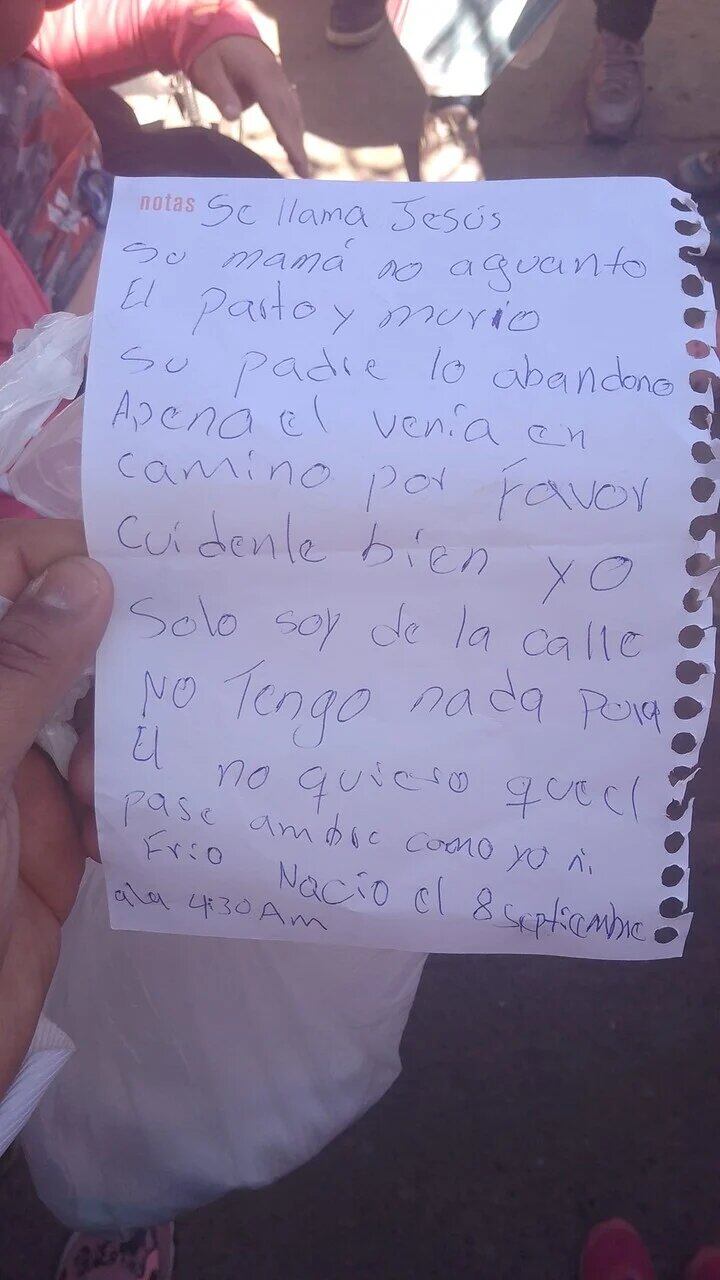 notas Se llama Jesús
su mamá no aguanto
El parto y murio
su padre lo abandono
Apena el venía en
camino por favor
cuidenle bien yo
Solo soy de la calle
No Tengo nada para
El no quiero que el
pase ambre como yo ni
Frio Nacio el 8 septiembre
ala 4:30 Am